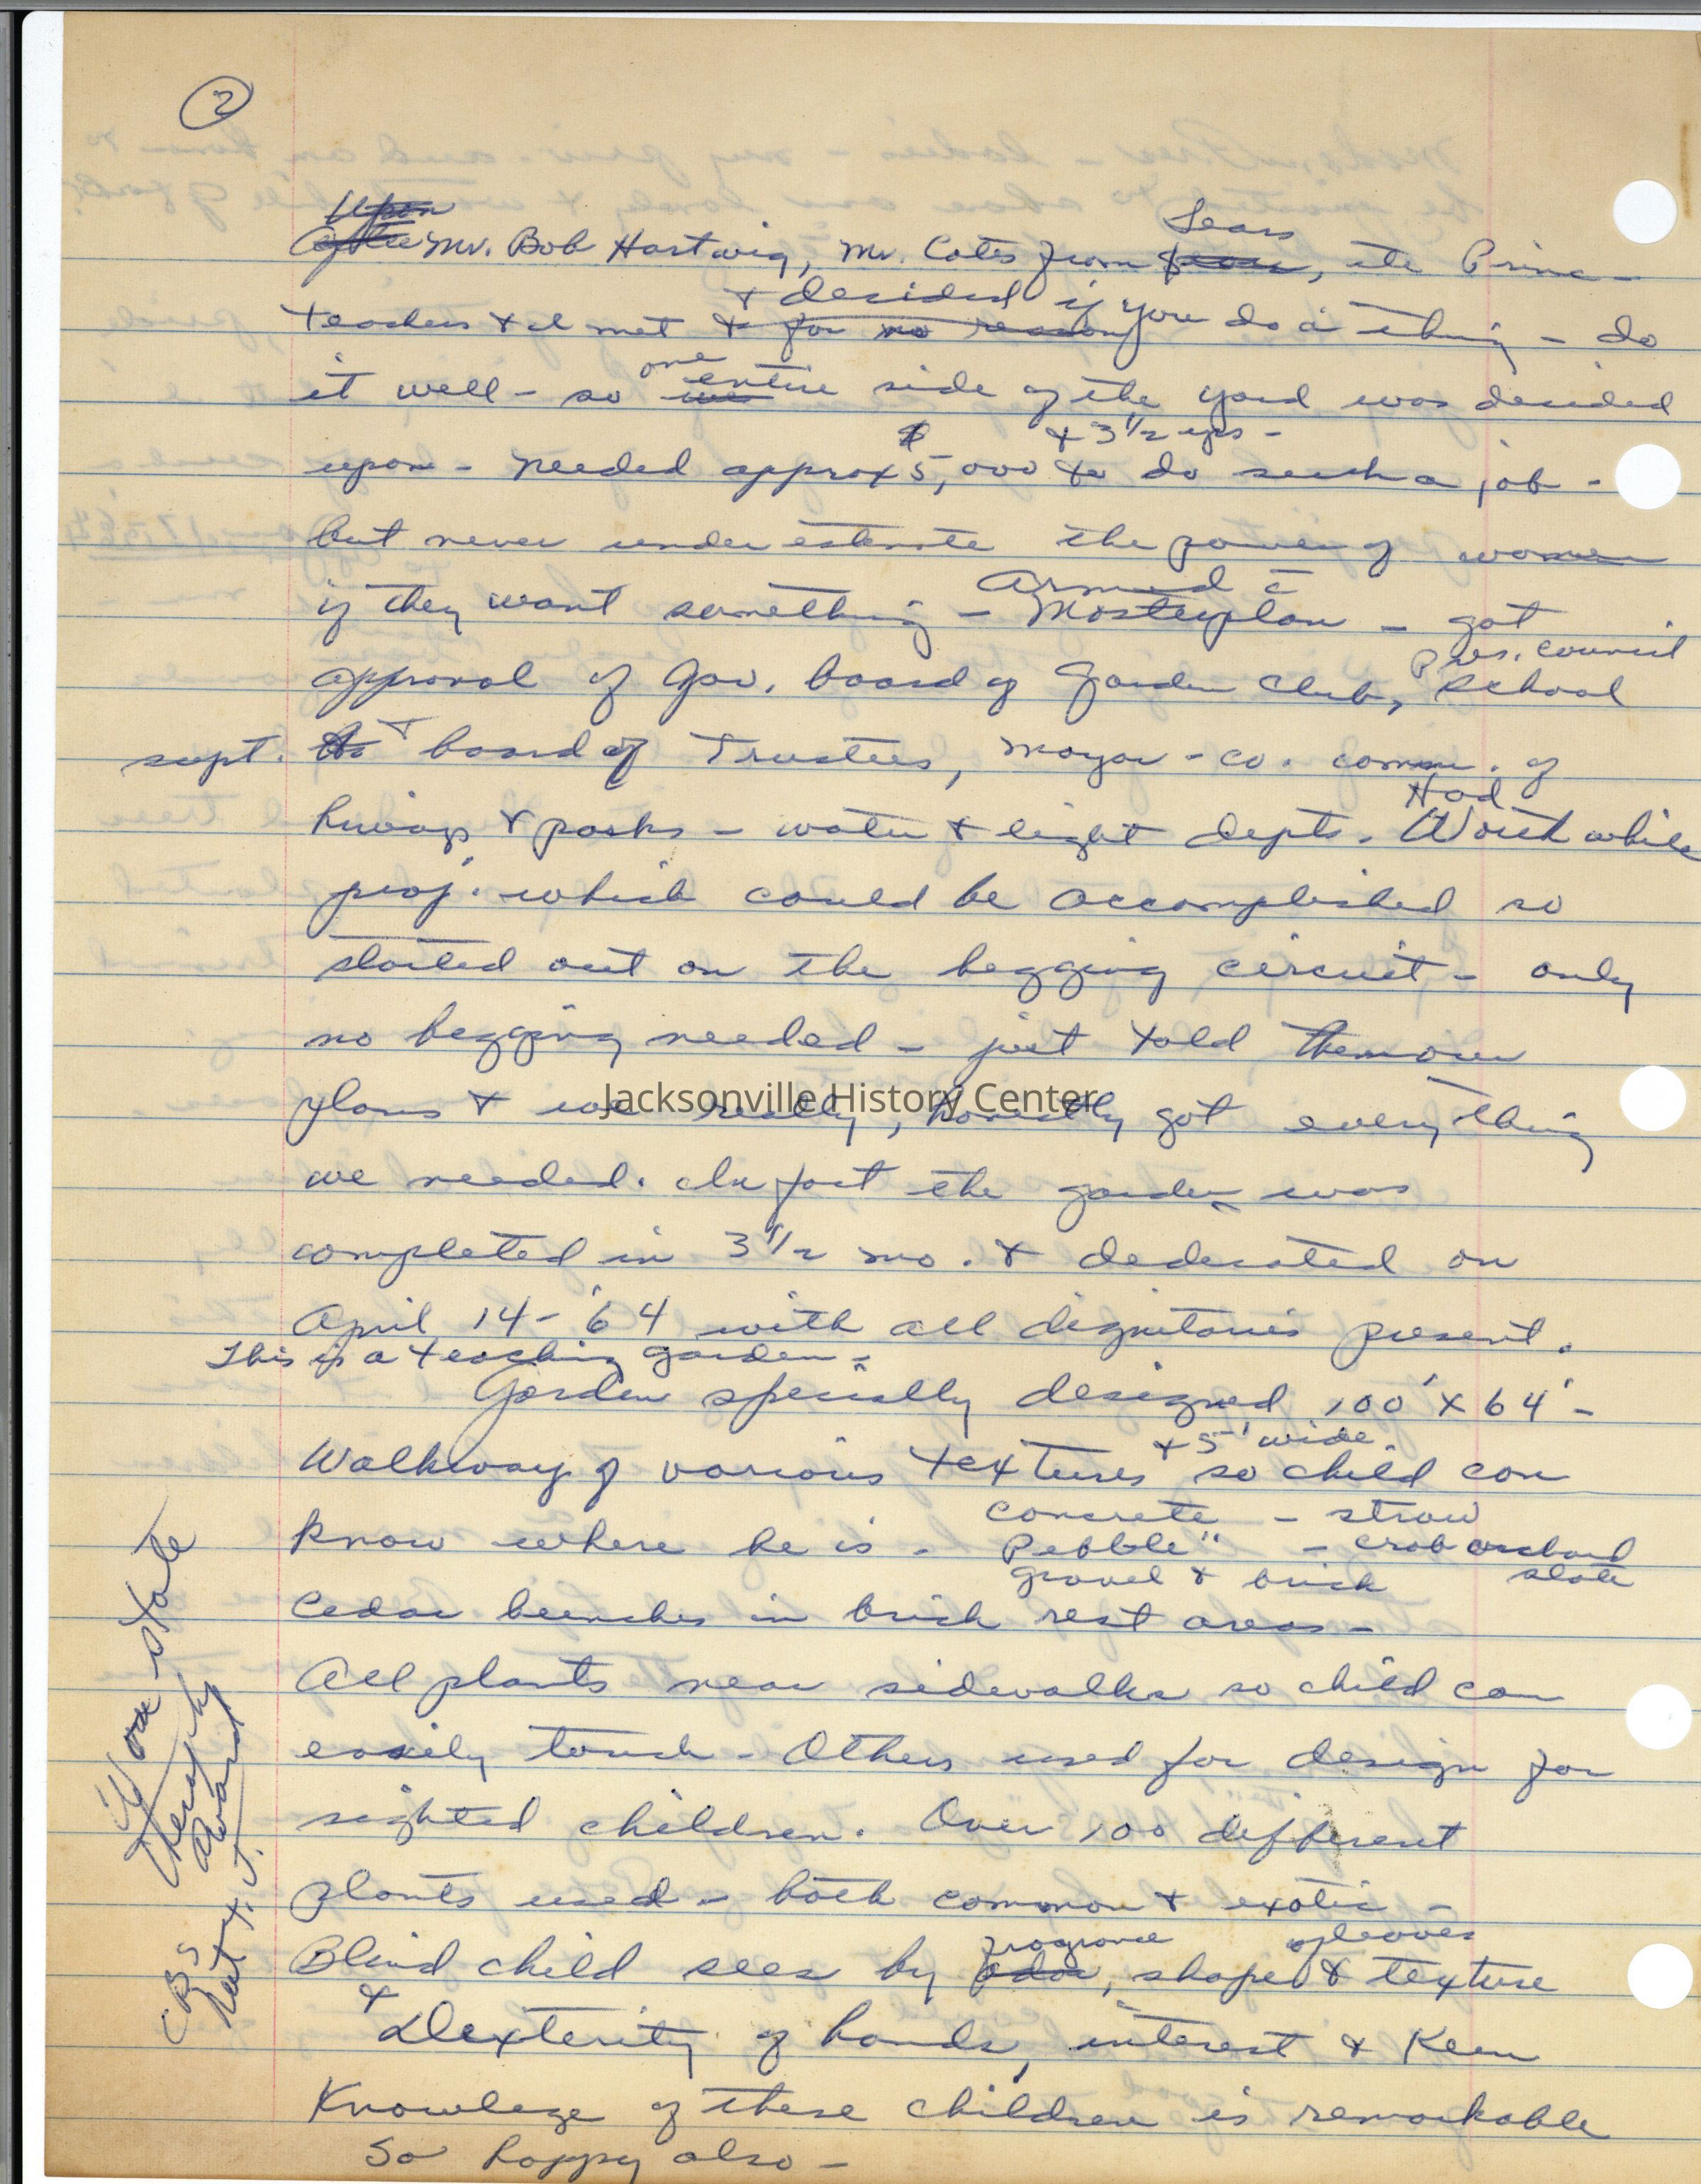 2
Upon Sears
After Mr. Bob Hartwig, Mr. Cates from, the Princ-
+ decided if you do a thing - do
teachers & I met & for no reason
one entire
it well - so side of the yard was decided
$ & 3 1/2 yrs -
upon - needed approx 5,000 to do such a job -
but never underestimate the power of women
Armed c̄
if they want something - Masterplan - got
Pres. council
approval of Gov. board of Garden Club, School
supt. & board of Trustees, Mayor - co. comm. of
Had
hiways & parks - water & light depts. Worth while
proj. which could be accomplished so
started out on the begging circuit - only
no begging needed - just told them our
plans & we really, honestly got everything
Jacksonville History Center
we needed. In fact the garden was
completed in 3 1/2 mo. & dedicated on
April 14 - '64 with all dignitaries present.
This is a teaching garden -
Garden specially designed 100' x 64' -
+ 5' wide.
Walkway of various textures so child can
concrete - straw
know where he is - Pebble " - crab orchard
gravel & brick slate
Cedar benches in brick rest areas -
All plants near sidewalks so child can
easily touch - Others used for design for
sighted children. Over 100 different
plants used - both common & exotic -
fragrance of leaves
Blind child sees by odor, shape & texture
&
Dexterity of hands, interest & keen
Knowlege of these children is remarkable
So happy also -
'64 state
Therapy
Award
CBS
Net. T.